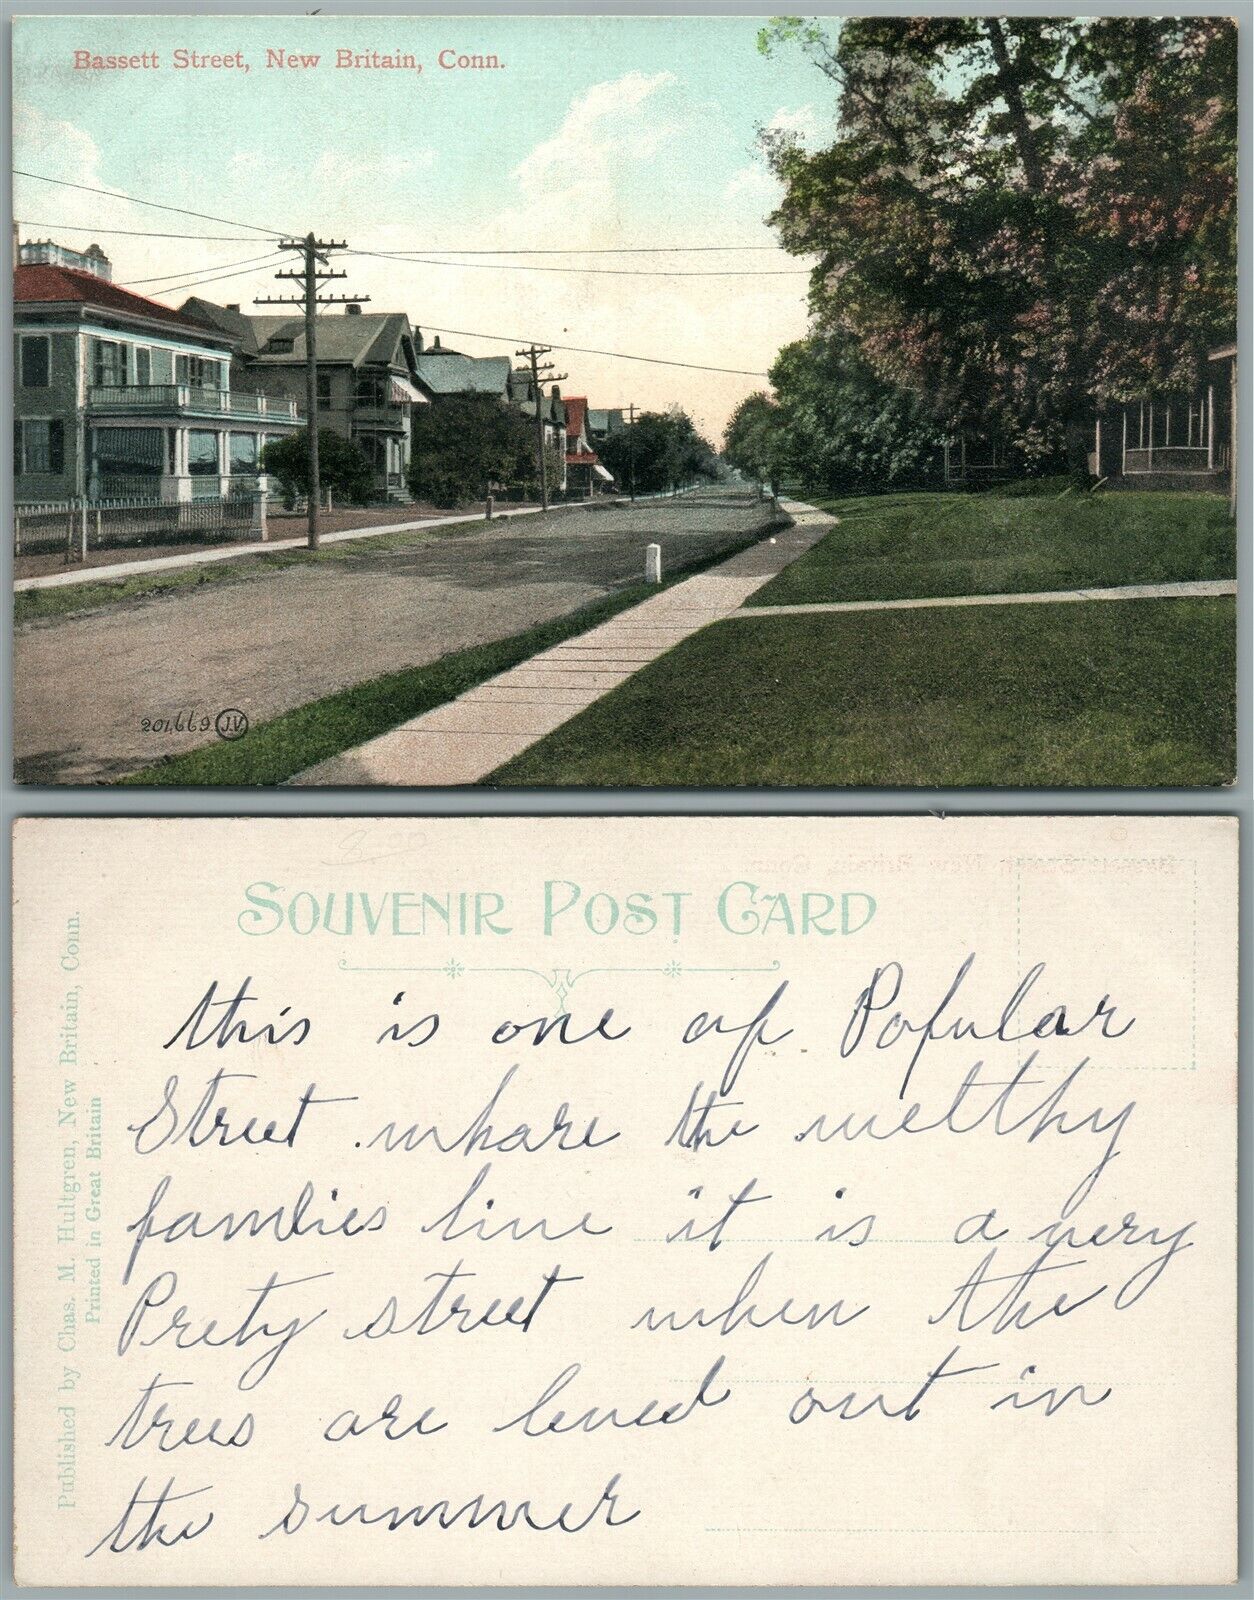 Bassett Street, New Britain, Conn.
201,669 J.V.
SOUVENIR POST CARD
Published by Chas. M. Hultgren, New Britain, Conn.
Printed in Great Britain
this is one of Popular
Street whare the welthy
families live it is a very
Prety street when the
trees are leved out in
the summer